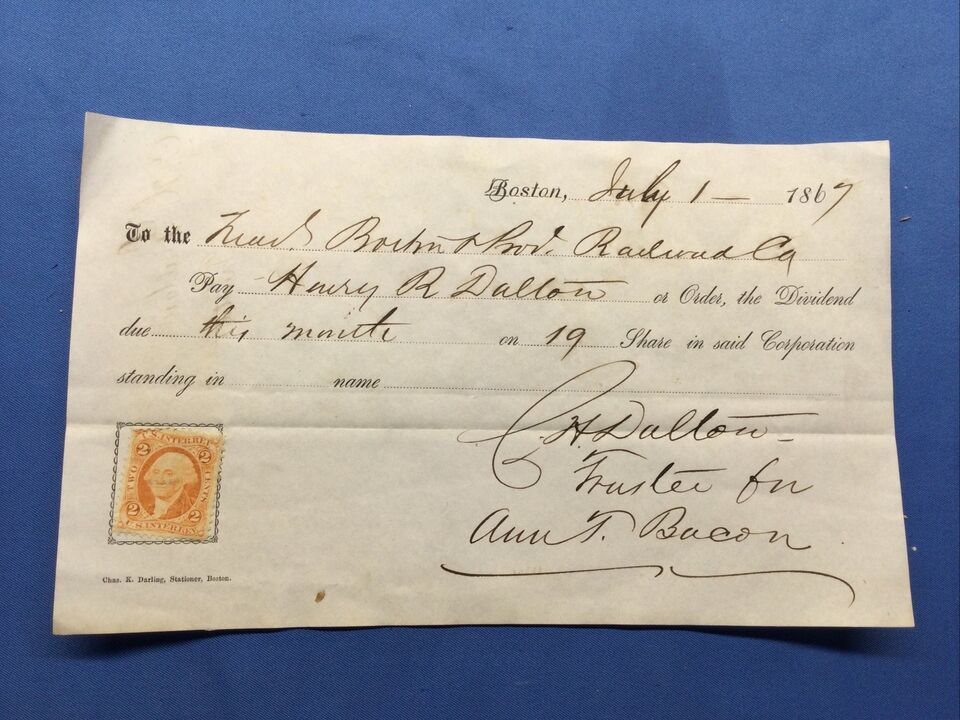 Boston, July 1 – 1867
To the Treas. Boston & Prov. Railroad Co
Pay Henry R Dalton or Order, the Dividend
due this month on 19 Share in said Corporation
standing in name
C. H. Dalton –
Trustee for
Ann T. Bacon
U.S. INTER. REV.
2 2
TWO CENTS
2 2
U.S. INTER. REV.
Chas. K. Darling, Stationer, Boston.